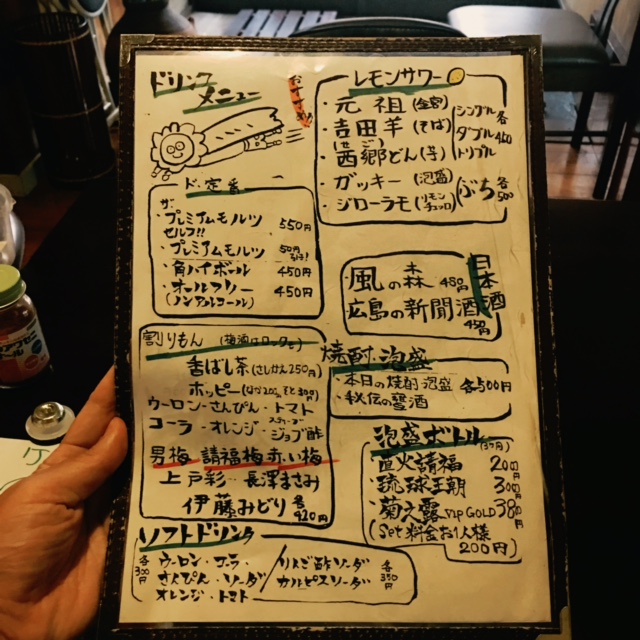 ドリンク
メニュー
おすすめ
ド定番
ザ・
・プレミアムモルツ 550円
セルフ!!
・プレミアムモルツ 50円
・角ハイボール 450円
・オールフリー 450円
(ノンアルコール)
レモンサワー
・元祖(金宮)
・吉田羊(そば)
・西郷どん(芋)
シングル
ダブル
トリプル
各
・ガッキー(泡盛)
・ジローラモ(リモンチェッロ)
ぶち各500
日本酒
・風の森 480円
広島の新聞酒
割りもん (梅酒はロックも)
香ばし茶(さしかえ250円)
ホッピー
ウーロン・さんぴん・トマト
コーラ・オレンジ・ジョブ酢
男梅 請福梅 赤い梅
上戸彩・長澤まさみ
伊藤みどり 各420円
焼酎 泡盛
・本日の焼酎 泡盛 各500円
・秘伝の醬酒
泡盛ボトル
直火請福
琉球王朝
菊之露VIP GOLD
(Set 料金お1人様
200円)
ソフトドリンク
各300円
ウーロン・コーラ・
さんぴん・ソーダ
オレンジ・トマト
りんご酢ソーダ
カルピスソーダ
各350円